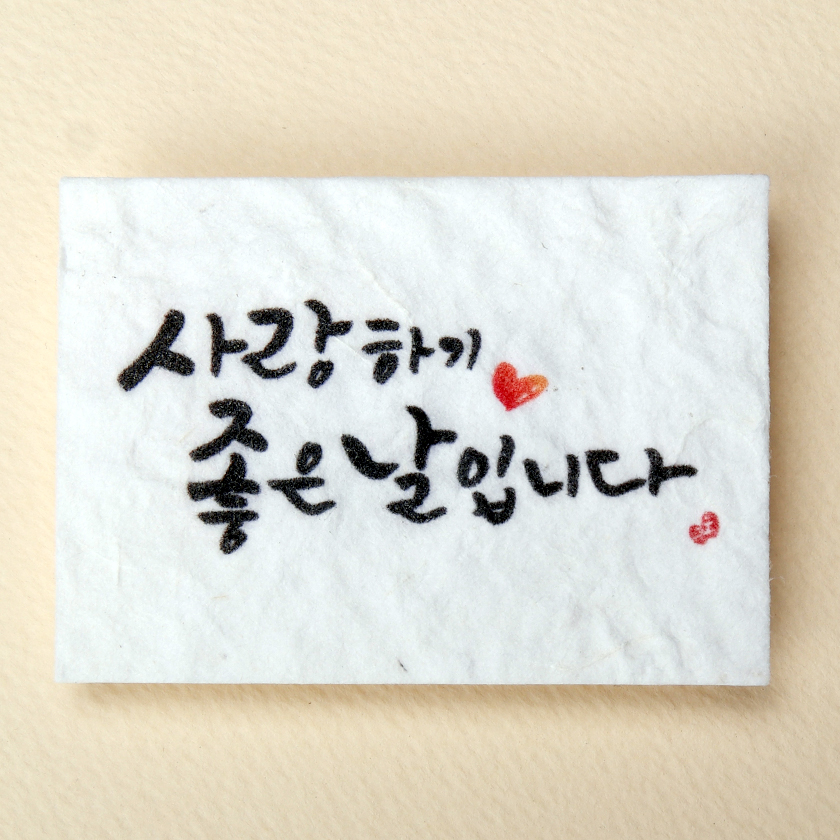 사랑하기
좋은 날입니다